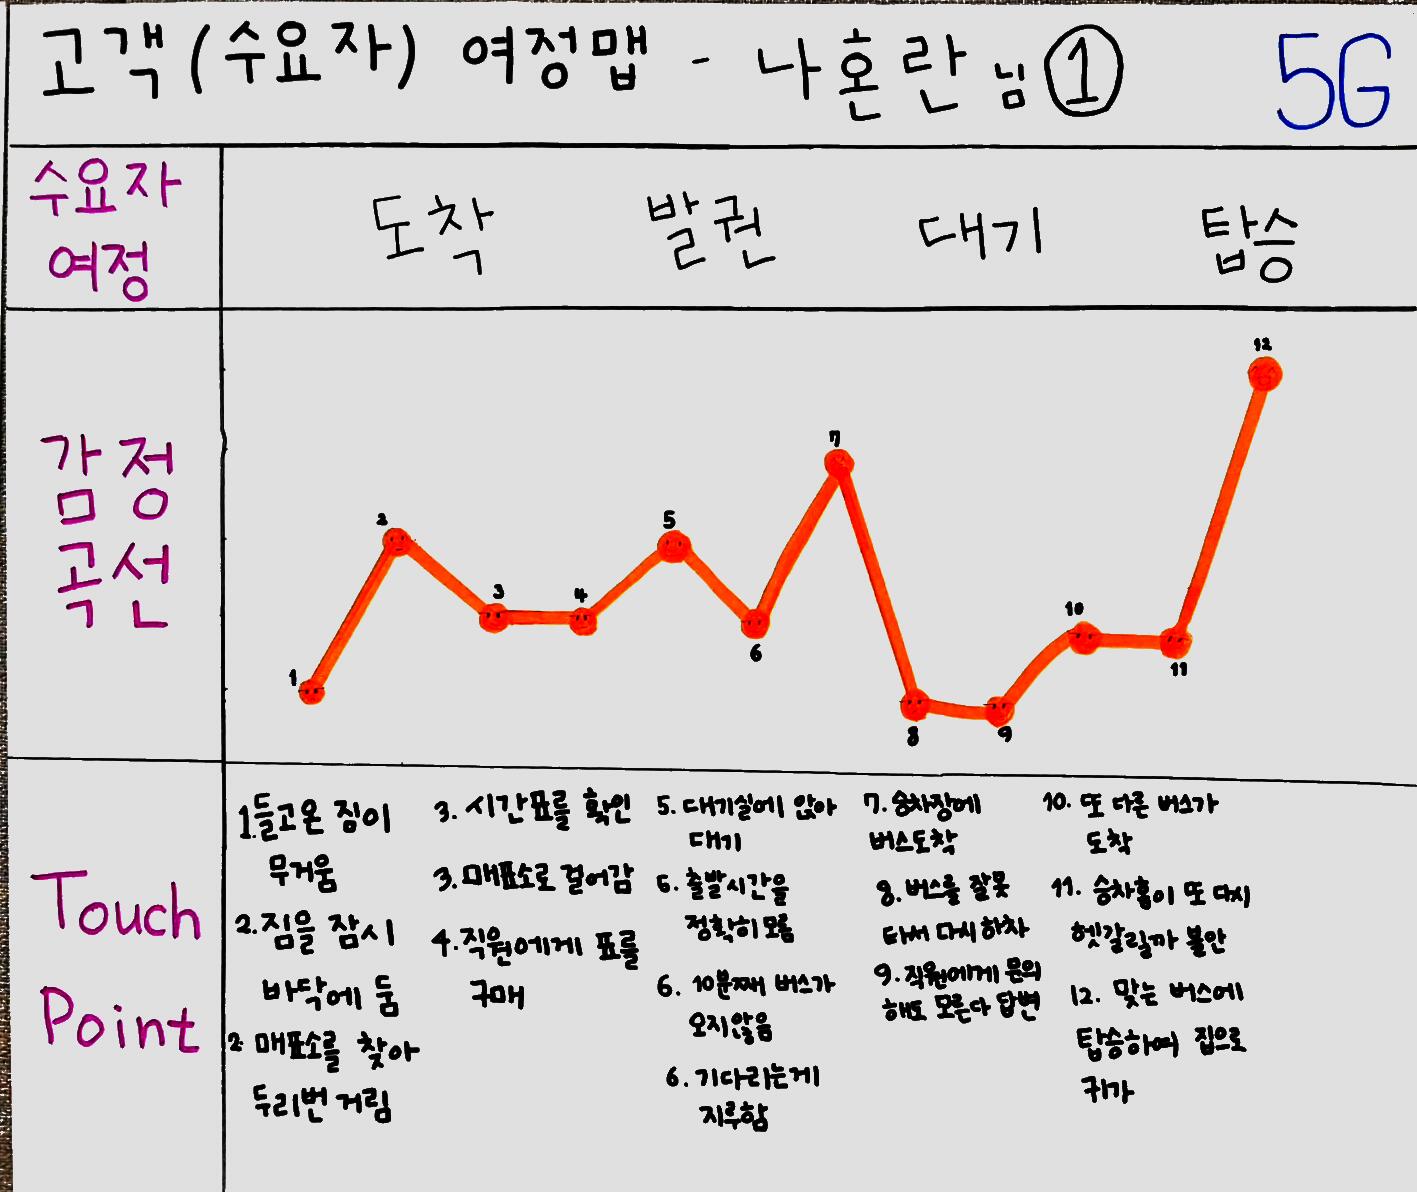 고객(수요자) 여정맵 - 나혼란님 ① 5G
수요자
여정
도착 발권 대기 탑승
감정
곡선
1
2
3
4
5
6
7
8
9
10
11
12
Touch
Point
1. 들고온 짐이
무거움
2. 짐을 잠시
바닥에 둠
2. 매표소를 찾아
두리번 거림
3. 시간표를 확인
3. 매표소로 걸어감
4. 직원에게 표를
구매
5. 대기실에 앉아
대기
6. 출발시간을
정확히 모름
6. 10분째 버스가
오지않음
6. 기다리는게
지루함
7. 승차장에
버스도착
8. 버스를 잘못
타서 다시 하차
9. 직원에게 문의
해도 모른다 답변
10. 또 다른 버스가
도착
11. 승차홈이 또 다시
헷갈릴까 불안
12. 맞는 버스에
탑승하여 집으로
귀가